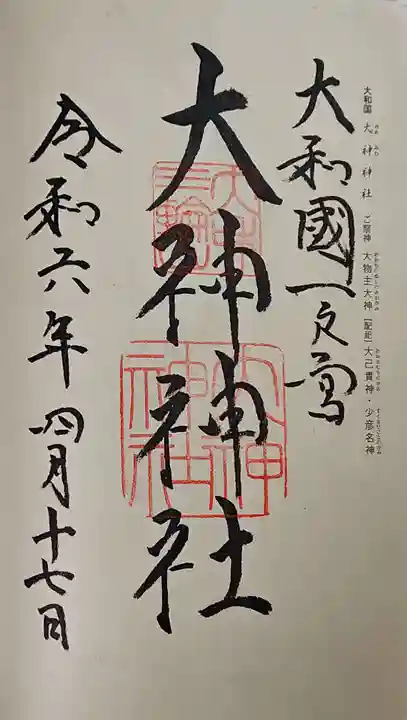 大和国 大神神社 ご祭神 大物主大神 [配祀] 大己貴神・少彦名神
大和國一之宮
大神神社
三輪
大神
神社
令和六年四月十七日